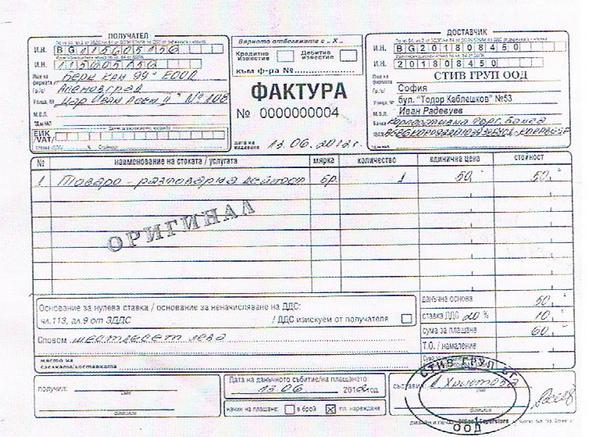 ПОЛУЧАТЕЛ
И.Н. BG115605156
И.Н. 115605156
Бери Ком 99" ЕООД
Гр./с/ Асеновград
Улица, № "Цар Иван Асен II" № 108
М.О.Л.
ЕИК
/VAT/
Вярното отбелязвайте с „X“
Кредитно известие
Дебитно известие
към ф-ра №
ФАКТУРА
№ 0000000004
дата на издаване 13.06.2012 г.
ДОСТАВЧИК
И.Н. BG201808450
И.Н. 201808450
СТИВ ГРУП ООД
Гр./с/ София
Улица, № бул. "Тодор Каблешков" №53
М.О.Л. Иван Радевуев
Банка Корпоративна търг. банка
№ наименование на стоката / услугата мярка количество единична цена стойност
1 Товаро-разтоварна дейност бр. 1 50.- 50.-
ОРИГИНАЛ
Основание за нулева ставка / основание за неначисляване на ДДС:
чл.113, ал.9 от ЗДДС / ДДС изискуем от получателя
Словом шестдесет лева
данъчна основа 50.-
ставка ДДС 20 % 10.-
сума за плащане 60.-
Т.О. / намаление
място на сделката/доставката
получил:
Дата на данъчното събитие/на плащането
13.06 2012 г.
начин на плащане: в брой X пл. нареждане
съставил
СТИВ ГРУП БГ
ООД